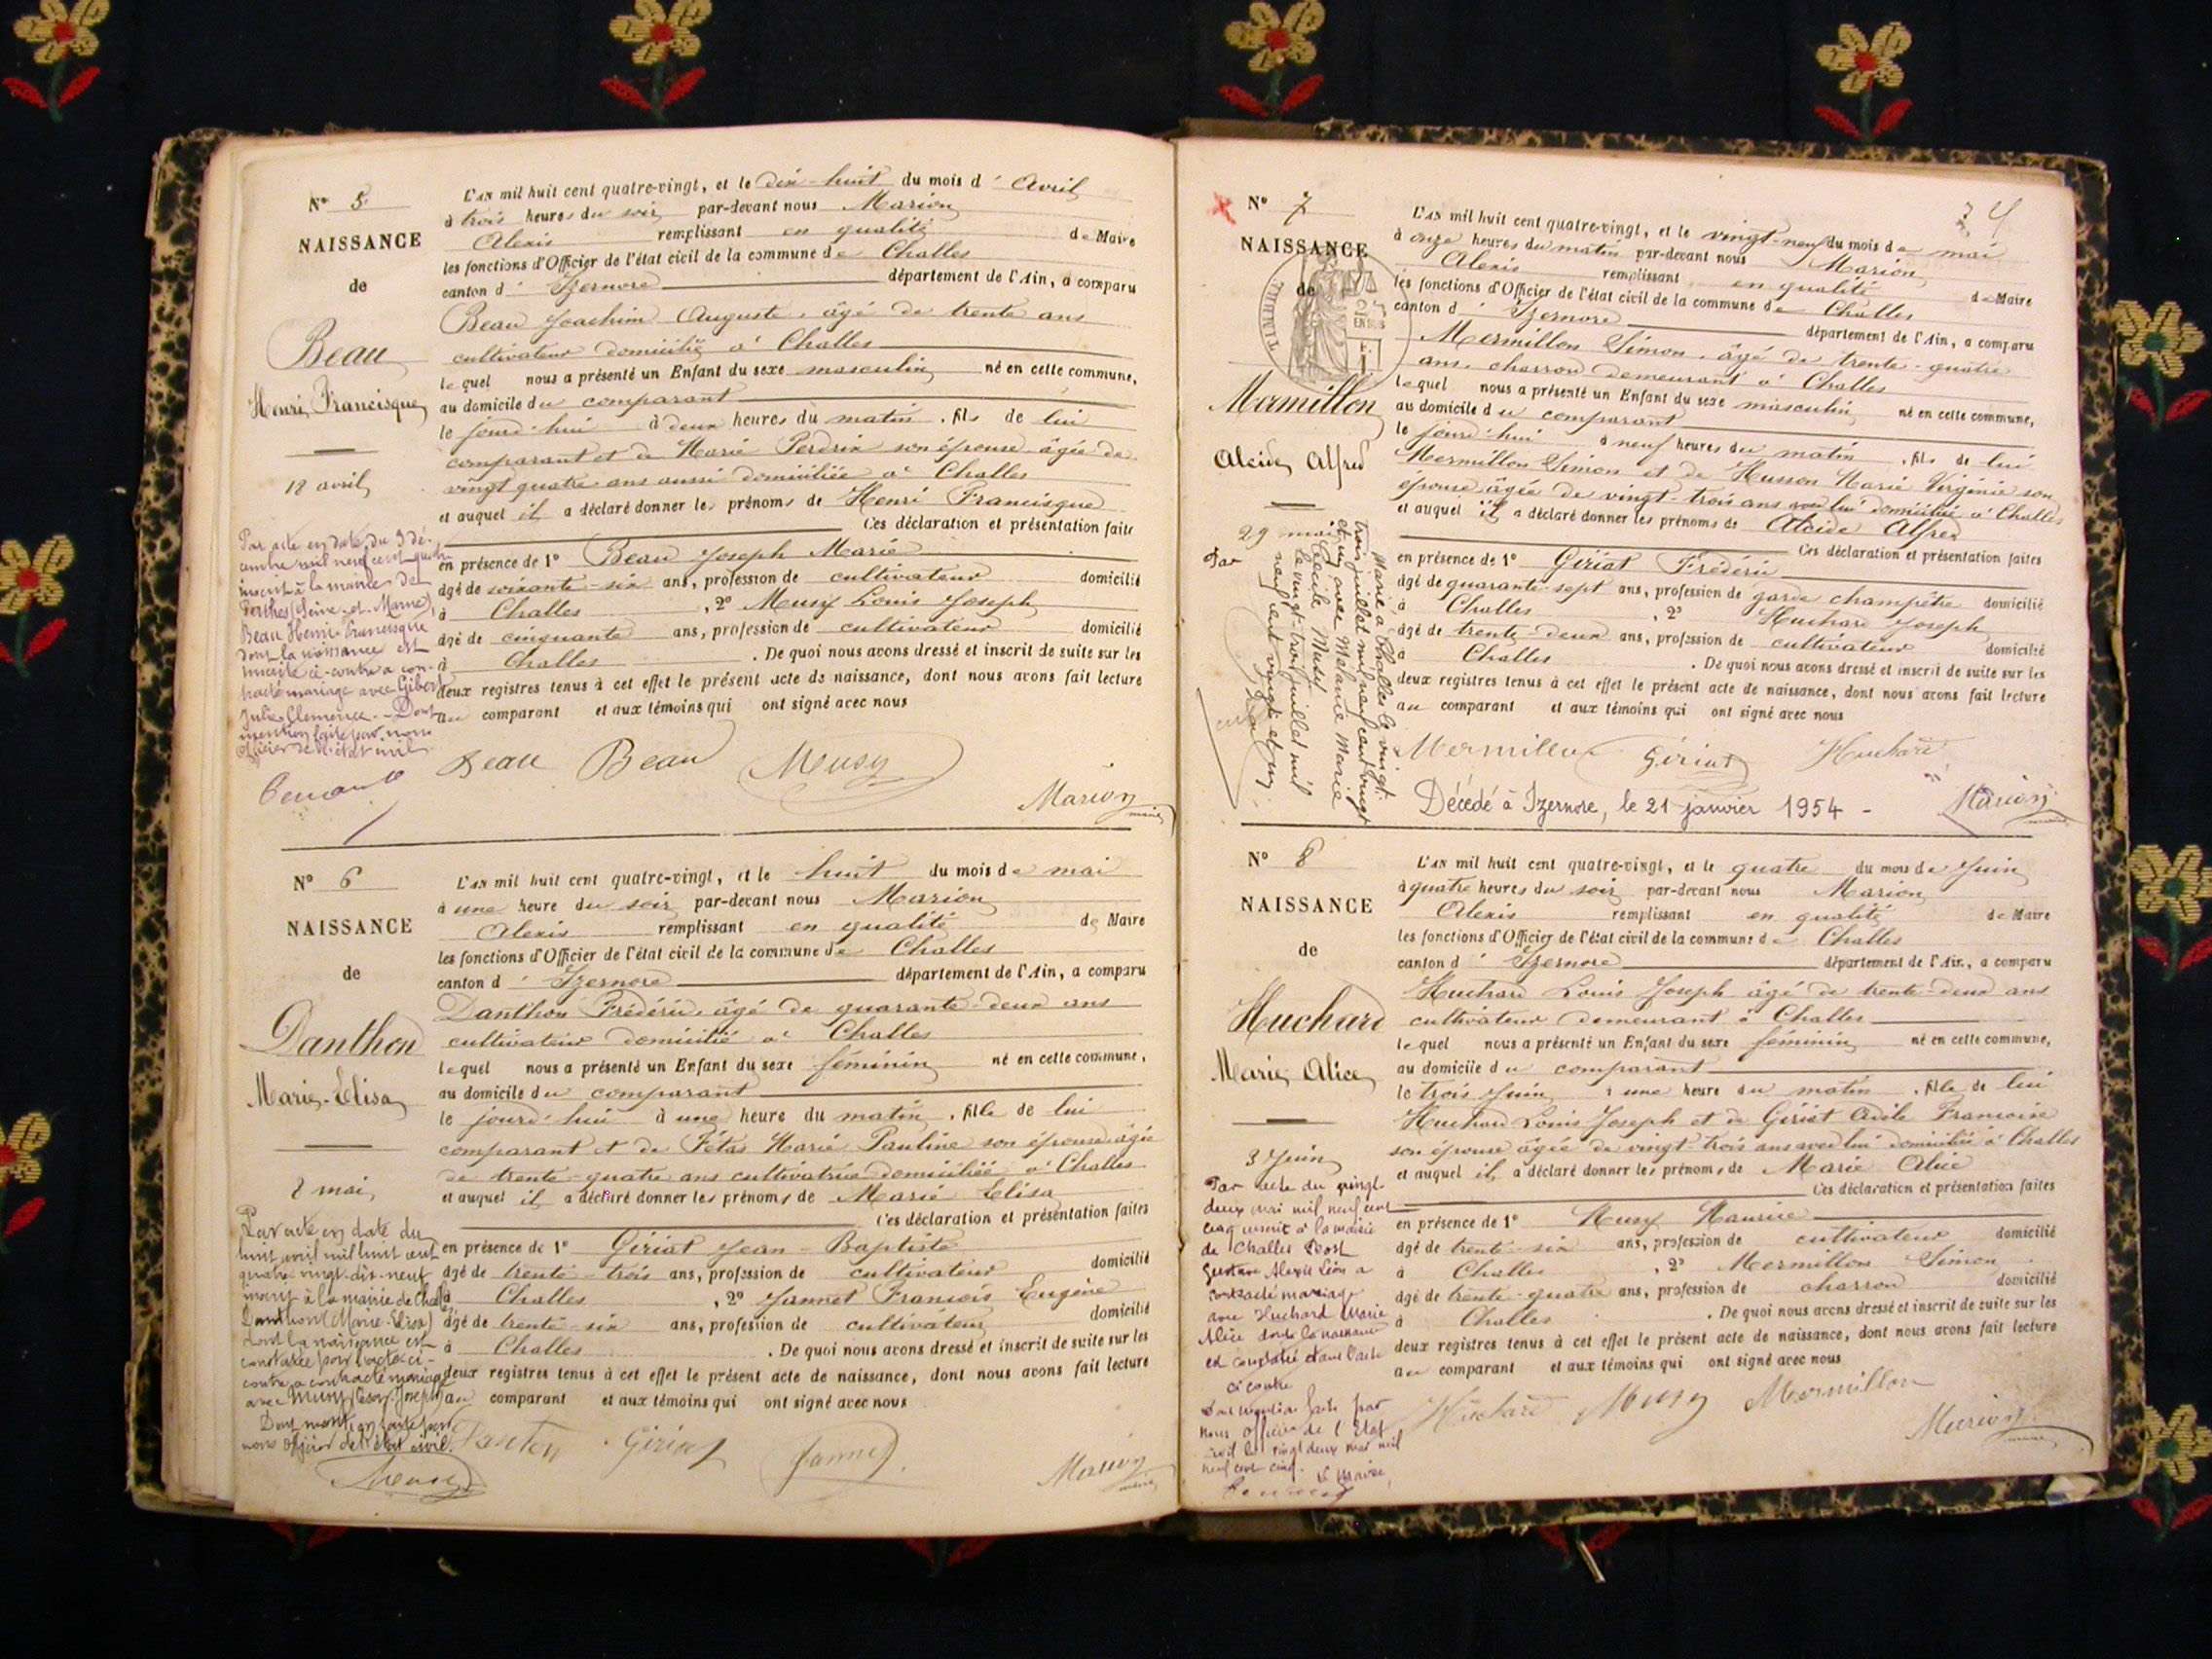 N° 5
NAISSANCE
de
Beau
Henri Francisque
18 avril
Par acte en date du 3 dé-
cembre mil neuf cent quatre
inscrit à la mairie de
Perthes (Seine-et-Marne)
Beau Henri Francisque
dont la naissance est
inscrite ci-contre a con-
tracté mariage avec Gibert
Julie Clémence. - Dont
mention faite par nous
officier de l'état civil.
L'AN mil huit cent quatre-vingt, et le dix-huit du mois d' Avril
à trois heures du soir par-devant nous Marion
Alexis remplissant en qualité de Maire
les fonctions d'Officier de l'état civil de la commune de Challes
canton d' Izernore département de l'Ain, a comparu
Beau Joachim Auguste, âgé de trente ans
cultivateur domicilié à Challes
lequel nous a présenté un Enfant du sexe masculin né en cette commune,
au domicile du comparant
le jourd'hui à deux heures du matin, fils de lui
comparant et de Marie Perdrix son épouse âgée de
vingt quatre ans aussi domiciliée à Challes
et auquel il a déclaré donner les prénoms de Henri Francisque
Ces déclaration et présentation faites
en présence de 1° Beau Joseph Marie
âgé de soixante-six ans, profession de cultivateur domicilié
à Challes, 2° Musy Louis Joseph
âgé de cinquante ans, profession de cultivateur domicilié
à Challes. De quoi nous avons dressé et inscrit de suite sur les
deux registres tenus à cet effet le présent acte de naissance, dont nous avons fait lecture
au comparant et aux témoins qui ont signé avec nous
Beau Beau Musy
Marion
maire
N° 6
NAISSANCE
de
Danthon
Marie-Elisa
8 mai
Par acte en date du
huit avril mil huit cent
quatre vingt-dix-neuf
inscrit à la mairie de Challes
Danthon (Marie-Elisa)
dont la naissance est
constatée par l'acte ci-
contre a contracté mariage
avec Musy (Léon-Joseph)
Dont mention faite par
nous officier de l'état civil.
L'AN mil huit cent quatre-vingt, et le huit du mois de mai
à une heure du soir par-devant nous Marion
Alexis remplissant en qualité de Maire
les fonctions d'Officier de l'état civil de la commune de Challes
canton d' Izernore département de l'Ain, a comparu
Danthon Frédéric, âgé de quarante-deux ans
cultivateur domicilié à Challes
lequel nous a présenté un Enfant du sexe féminin né en cette commune,
au domicile du comparant
le jourd'hui à une heure du matin, fille de lui
comparant et de Fétas Marie Pauline son épouse âgée
de trente-quatre ans cultivatrice domiciliée à Challes
et auquel il a déclaré donner les prénoms de Marie Elisa
Ces déclaration et présentation faites
en présence de 1° Gériat Jean-Baptiste
âgé de trente-trois ans, profession de cultivateur domicilié
à Challes, 2° Jannet François Eugène
âgé de trente-six ans, profession de cultivateur domicilié
à Challes. De quoi nous avons dressé et inscrit de suite sur les
deux registres tenus à cet effet le présent acte de naissance, dont nous avons fait lecture
au comparant et aux témoins qui ont signé avec nous
Danton Gériat Jannet
Marion
maire
N° 7
NAISSANCE
de
TIMBRE
Mermillon
Alcide Alfred
29 mai
Par
Marié à Challes le vingt-
trois juillet mil neuf cent vingt
et un avec Mélanie Marie
Cécile Musy
Le vingt-trois juillet mil
neuf cent vingt et un.
L'AN mil huit cent quatre-vingt, et le vingt-neuf du mois de mai
à onze heures du matin par-devant nous Marion
Alexis remplissant en qualité de Maire
les fonctions d'Officier de l'état civil de la commune de Challes
canton d' Izernore département de l'Ain, a comparu
Mermillon Simon, âgé de trente-quatre
ans, charron demeurant à Challes
lequel nous a présenté un Enfant du sexe masculin né en cette commune,
au domicile du comparant
le jourd'hui à neuf heures du matin, fils de lui
Mermillon Simon et de Husson Marie Virginie son
épouse âgée de vingt-trois ans avec lui domiciliée à Challes
et auquel il a déclaré donner les prénoms de Alcide Alfred
Ces déclaration et présentation faites
en présence de 1° Gériat Frédéric
âgé de quarante-sept ans, profession de garde champêtre domicilié
à Challes, 2° Huchard Joseph
âgé de trente-deux ans, profession de cultivateur domicilié
à Challes. De quoi nous avons dressé et inscrit de suite sur les
deux registres tenus à cet effet le présent acte de naissance, dont nous avons fait lecture
au comparant et aux témoins qui ont signé avec nous
Mermillon Gériat Huchard
Décédé à Izernore, le 21 janvier 1954 -
Marion
N° 8
NAISSANCE
de
Huchard
Marie Alice
3 Juin
Par acte du vingt
deux mai mil neuf cent
cinq inscrit à la mairie
de Challes
Gustave Alexis Léon a
contracté mariage
avec Huchard Marie
Alice dont la naissance
est constatée dans l'acte
ci contre
Dont mention faite par
nous officier de l'Etat
civil le vingt deux mai mil
neuf cent cinq.
Le Maire,
L'AN mil huit cent quatre-vingt, et le quatre du mois de Juin
à quatre heures du soir par-devant nous Marion
Alexis remplissant en qualité de Maire
les fonctions d'Officier de l'état civil de la commune de Challes
canton d' Izernore département de l'Ain, a comparu
Huchard Louis Joseph âgé de trente-deux ans
cultivateur demeurant à Challes
lequel nous a présenté un Enfant du sexe féminin né en cette commune,
au domicile du comparant
le trois Juin à une heure du matin, fille de lui
Huchard Louis Joseph et de Gériat Adèle Françoise
son épouse âgée de vingt-trois ans avec lui domiciliée à Challes
et auquel il a déclaré donner les prénoms de Marie Alice
Ces déclaration et présentation faites
en présence de 1° Musy Maurice
âgé de trente-six ans, profession de cultivateur domicilié
à Challes, 2° Mermillon Simon
âgé de trente-quatre ans, profession de charron domicilié
à Challes. De quoi nous avons dressé et inscrit de suite sur les
deux registres tenus à cet effet le présent acte de naissance, dont nous avons fait lecture
au comparant et aux témoins qui ont signé avec nous
Huchard Musy Mermillon
Marion
maire